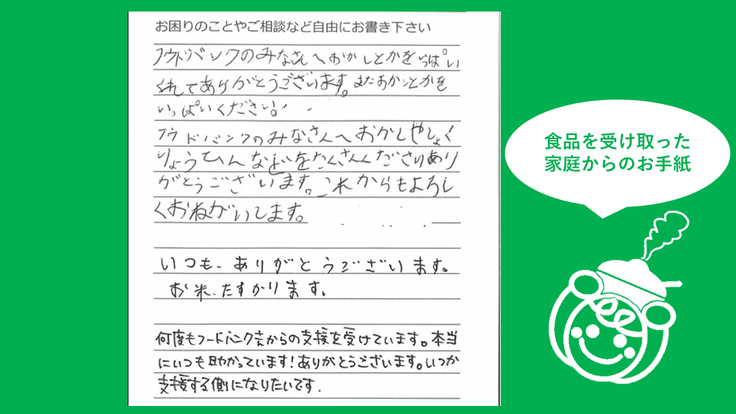 お困りのことやご相談など自由にお書き下さい
フウドバンクのみなさんへおかしとかをいっぱい
くれてありがとうございます。またおかしとかを
いっぱいください!
フウドバンクのみなさんへおかしやしょく
りょうひんなどをたくさんくださいあり
がとうございます。これからもよろし
くおねがいします。
いつも、ありがとうございます。
お米、たすかります。
何度もフードバンクさからの支援を受けています。本当
にいつも助かっています!ありがとうございます。いつか
支援する側になりたいです。
食品を受け取った
家庭からのお手紙